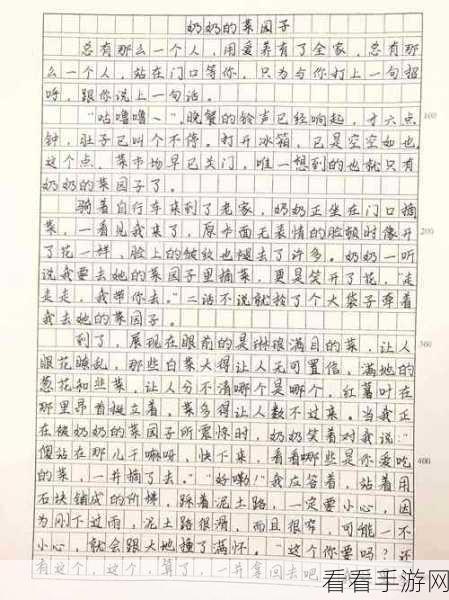 奶奶的菜园子
总有那么一个人，用爱养育了全家，总有那
么一个人，站在门口等你，只为与你打上一句招
呼，跟你说上一句话。
“咕噜噜~”，晚餐的铃声已经响起，才六点
100
钟，肚子已叫个不停。打开冰箱，已是空空如也，
这个点，菜市场早已关门，唯一想到的也就只有
奶奶的菜园子了。
骑着自行车来到了老家，奶奶正坐在门口摘
菜，一看见我来了，原本面无表情的脸顿时像开
200
了花一样，脸上的皱纹也褪去了许多。奶奶一听
说我要去她的菜园子里摘菜，更是笑开了花，“走
走走，我带你去。”二话不说就拎了个大袋子牵着
我去她的菜园子。
到了，展现在眼前的是琳琅满目的菜，让人
300
眼花瞭乱，那些白菜大得让人无可置信，满地的
葱花和韭菜，让人分不清哪个是哪个，红薯叶在
那里昂首挺立着，菜多得让人数不过来。当我正
在被奶奶的菜园子所震惊时，奶奶笑着对我说：“
傻站在那儿干嘛呀，快下来，看看哪些是你爱吃
400
的菜，一并摘了去。”“好嘞！”我应答着，站着用
石块铺成的阶梯，踩着泥土路，一定要小心，因
为刚下过雨，泥土路很滑，而且很窄，可能一不
小心，就会跟大地撞了满怀。“这个你要吗？还
有这个，这个，算了，一并拿回去吧
看看手游网